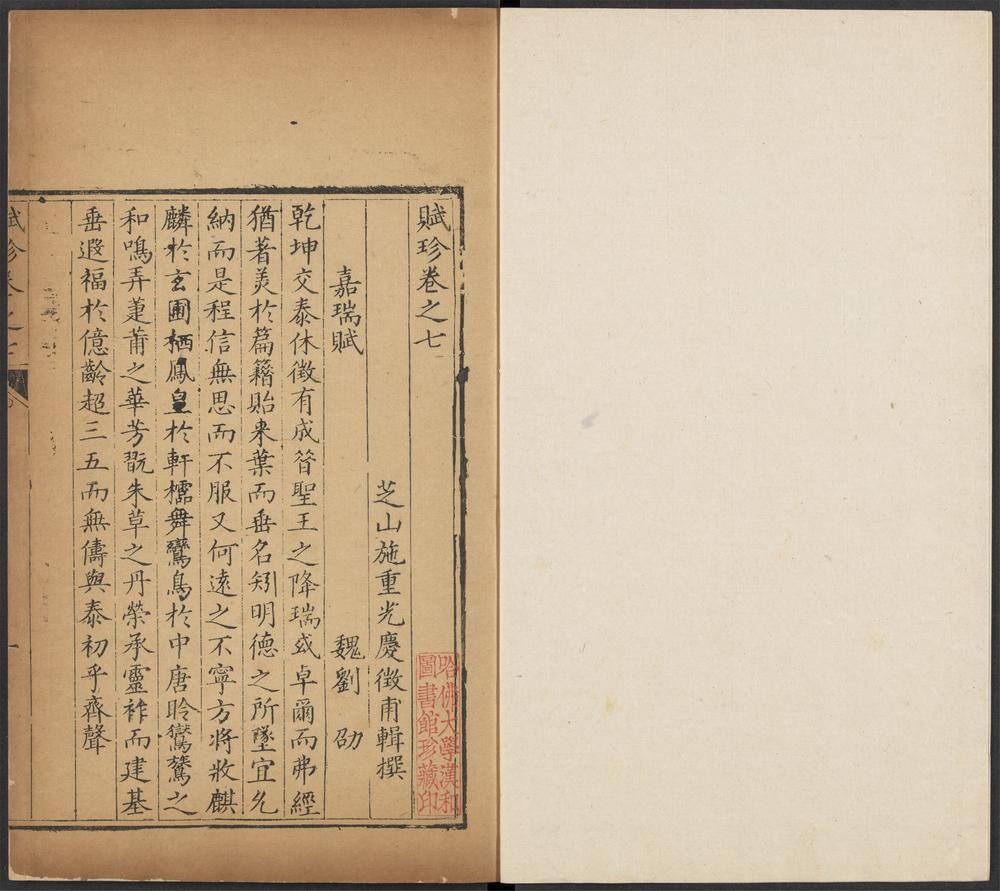 賦珍卷之七
芝山施重光慶徵甫輯撰
嘉瑞賦 魏劉 劭
乾坤交泰休徵有成昝聖王之降瑞或卓爾而弗經
猶著美於篇籍貽来葉而垂名矧明德之所墜宜允
納而是程信無思而不服又何遠之不寧方將牧麒
麟於玄圃栖鳳皇於軒櫺舞鸞鳥於中唐聆鸑鷟之
和鳴弄萐莆之華芳翫朱草之丹榮承靈祚而建基
垂遐福於億齡超三五而無儔與泰初乎齊聲
賦珍卷之七
一
哈佛大學漢和
圖書館珍藏印